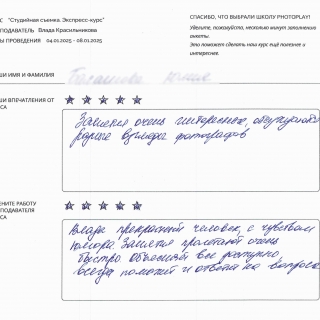 С "Студийная съемка. Экспресс-курс"
ПОДАВАТЕЛЬ Влада Красильникова
Ы ПРОВЕДЕНИЯ 04.01.2025 - 08.01.2025
СПАСИБО, ЧТО ВЫБРАЛИ ШКОЛУ PHOTOPLAY!
Уделите, пожалуйста, несколько минут заполнению
анкеты.
Это поможет сделать наш курс ещё полезнее и
интереснее.
ШИ ИМЯ И ФАМИЛИЯ
ШИ ВПЕЧАТЛЕНИЯ ОТ
СА
Занятия очень интересные, обсуждали
разные взгляды фотографов
ЕНИТЕ РАБОТУ
ПОДАВАТЕЛЯ
СА
Влада прекрасный человек, с чувством
юмора. Занятия пролетают очень
быстро. Объясняет все доступно,
всегда поможет и ответит на вопросы